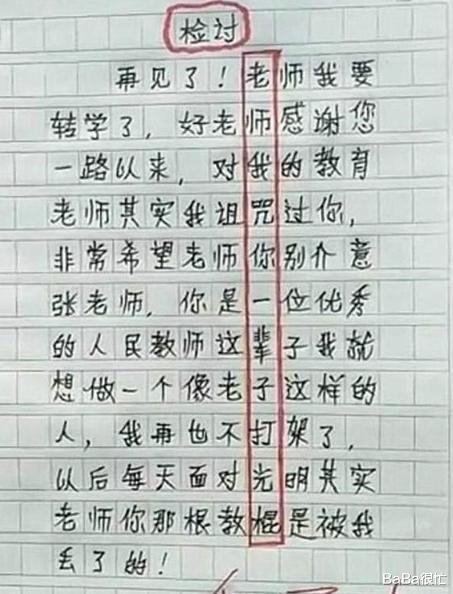 检讨
再见了！老师我要
转学了，好老师感谢您
一路以来，对我的教育
老师其实我诅咒过你，
非常希望老师你别介意
张老师，你是一位优秀
的人民教师这辈子我就
想做一个像老子这样的
人，我再也不打架了，
以后每天面对光明其实
老师你那根教棍是被我
丢了的！
BaBa很忙